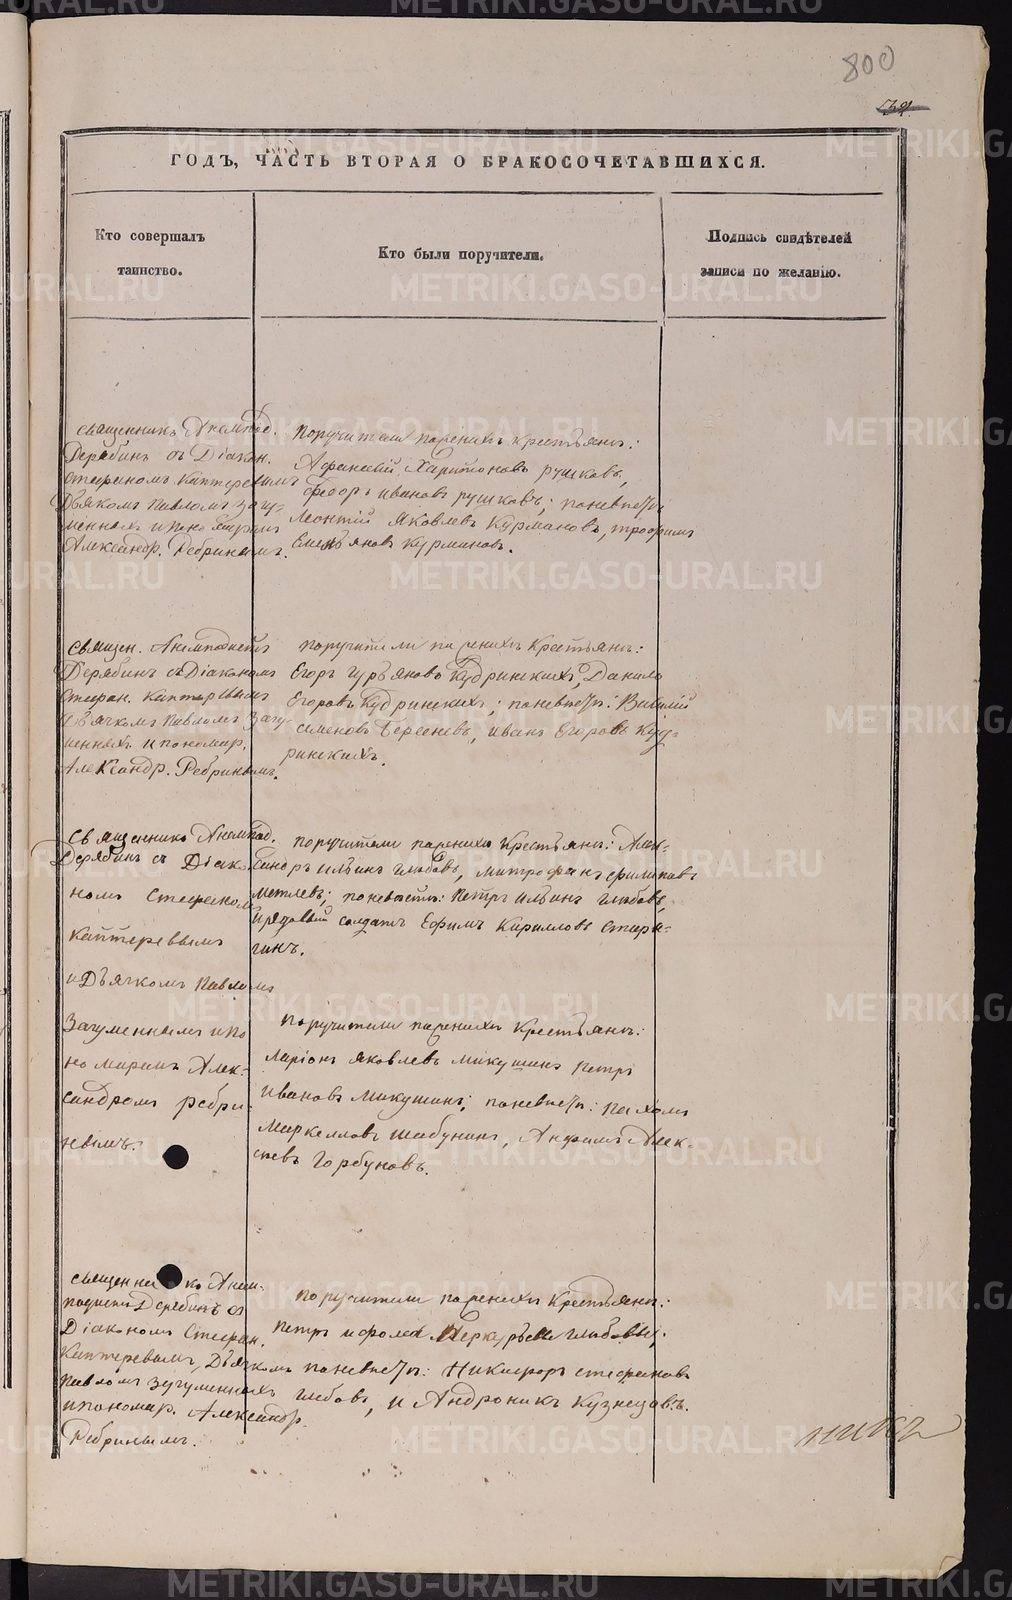 800
ГОДЪ, ЧАСТЬ ВТОРАЯ О БРАКОСОЧЕТАВШИХСЯ.
Кто совершалъ
таинство.
Кто были поручители.
Подпись свидѣтелей
записи по желанію.
священникъ Анемпод.
Дерябинъ съ Діакон.
Стефаномъ Каптеревымъ
Дьякомъ Павломъ Загу-
меннымъ и пономаремъ
Александр. Ребринымъ.
поручители по женихѣ крестьяне:
Афанасій Харитоновъ рушковъ,
федоръ ивановъ рушковъ; поневѣстѣ
Леонтій Яковлевъ Курмановъ, трофимъ
Емельяновъ Курмановъ.
священ. Анемподистъ
Дерябинъ съ Діакономъ
Стефан. Каптеревымъ
Дьячкомъ Павломъ Загу-
меннымъ и пономар.
Александр. Ребринымъ.
поручители по женихѣ Крестьяне:
Егоръ гурьяновъ Кудринскихъ, Данило
Егоровъ Кудринскихъ; поневѣстѣ: Василій
семеновъ Бересневъ, иванъ Егоровъ Куд-
ринскихъ.
священникъ Анемпод.
Дерябинъ съ Діако-
номъ Стефаномъ
Каптеревымъ
и Дьячкомъ Павломъ
Загуменнымъ и по
номаремъ Алек-
сандромъ ребри-
нымъ.
поручители по женихѣ крестьяне: Алек-
сандръ ильинъ глебовъ, митрофанъ филиповъ
метлевъ; поневѣстѣ: Петръ ильинъ глебовъ,
и рядовый солдатъ Ефимъ Кирилловъ Стара-
гинъ.
поручители по женихѣ Крестьяне:
Ларіонъ Яковлевъ микушинъ Петръ
ивановъ микушинъ; поневѣстѣ: пахомъ
маркелловъ шабунинъ, Анфимъ Алек-
сѣевъ Горбуновъ.
священникъ Анем-
подистъ Дерябинъ съ
Діакономъ Стефан.
Каптеревымъ, Дьячкомъ
Павломъ Загуменнымъ
и пономар. Александр.
Ребринымъ.
поручители по женихѣ Крестьяне:
петръ и фома Меркурьевы глебовы;
поневѣстѣ: Никифоръ стефановъ
глебовъ, и Андроникъ Кузнецовъ.